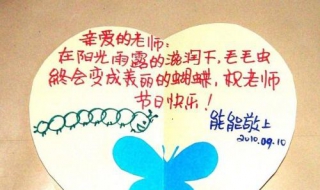 亲爱的老师:
在阳光雨露的滋润下,毛毛虫
終会变成美丽的蝴蝶,祝老师
节日快乐!
能能敬上
2010.09.10